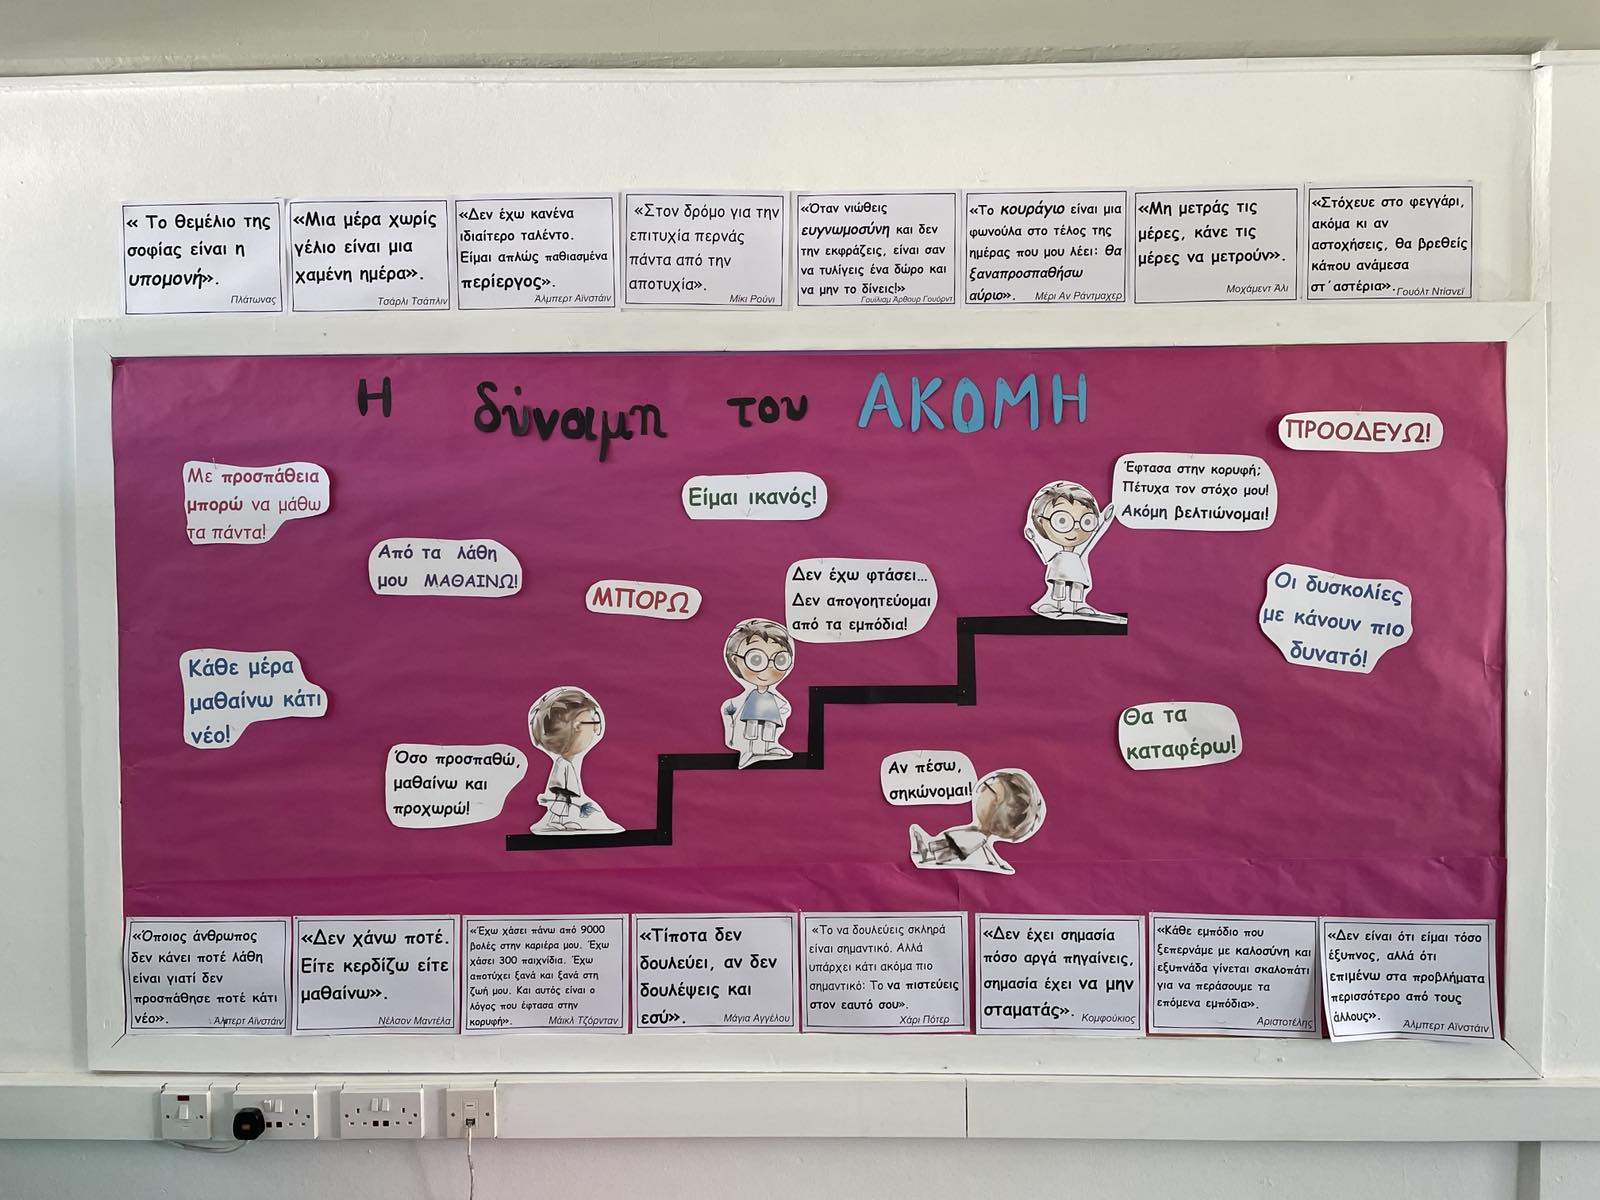 « Το θεμέλιο της
σοφίας είναι η
υπομονή».
Πλάτωνας
«Μια μέρα χωρίς
γέλιο είναι μια
χαμένη ημέρα».
Τσάρλι Τσάπλιν
«Δεν έχω κανένα
ιδιαίτερο ταλέντο.
Είμαι απλώς παθιασμένα
περίεργος».
Άλμπερτ Αϊνστάιν
«Στον δρόμο για την
επιτυχία περνάς
πάντα από την
αποτυχία».
Μίκι Ρούνι
«Όταν νιώθεις
ευγνωμοσύνη και δεν
την εκφράζεις, είναι σαν
να τυλίγεις ένα δώρο και
να μην το δίνεις!»
Γουίλιαμ Άρθουρ Γουόρντ
«Το κουράγιο είναι μια
φωνούλα στο τέλος της
ημέρας που μου λέει: θα
ξαναπροσπαθήσω
αύριο».
Μέρι Αν Ράντμαχερ
«Μη μετράς τις
μέρες, κάνε τις
μέρες να μετρούν».
Μοχάμεντ Άλι
«Στόχευε στο φεγγάρι,
ακόμα κι αν
αστοχήσεις, θα βρεθείς
κάπου ανάμεσα
στ΄αστέρια».
Γουόλτ Ντίσνεϊ
Η δύναμη του ΑΚΟΜΗ
ΠΡΟΟΔΕΥΩ!
Με προσπάθεια
μπορώ να μάθω
τα πάντα!
Είμαι ικανός!
Έφτασα στην κορυφή;
Πέτυχα τον στόχο μου!
Ακόμη βελτιώνομαι!
Από τα λάθη
μου ΜΑΘΑΙΝΩ!
ΜΠΟΡΩ
Δεν έχω φτάσει...
Δεν απογοητεύομαι
από τα εμπόδια!
Οι δυσκολίες
με κάνουν πιο
δυνατό!
Κάθε μέρα
μαθαίνω κάτι
νέο!
Θα τα
καταφέρω!
Όσο προσπαθώ,
μαθαίνω και
προχωρώ!
Αν πέσω,
σηκώνομαι!
«Όποιος άνθρωπος
δεν κάνει ποτέ λάθη
είναι γιατί δεν
προσπάθησε ποτέ κάτι
νέο».
Άλμπερτ Αϊνστάιν
«Δεν χάνω ποτέ.
Είτε κερδίζω είτε
μαθαίνω».
Νέλσον Μαντέλα
«Έχω χάσει πάνω από 9000
βολές στην καριέρα μου. Έχω
χάσει 300 παιχνίδια. Έχω
αποτύχει ξανά και ξανά στη
ζωή μου. Και αυτός είναι ο
λόγος που έφτασα στην
κορυφή».
Μάικλ Τζόρνταν
«Τίποτα δεν
δουλεύει, αν δεν
δουλέψεις και
εσύ».
Μάγια Αγγέλου
«Το να δουλεύεις σκληρά
είναι σημαντικό. Αλλά
υπάρχει κάτι ακόμα πιο
σημαντικό: Το να πιστεύεις
στον εαυτό σου».
Χάρι Πότερ
«Δεν έχει σημασία
πόσο αργά πηγαίνεις,
σημασία έχει να μην
σταματάς».
Κομφούκιος
«Κάθε εμπόδιο που
ξεπερνάμε με καλοσύνη και
εξυπνάδα γίνεται σκαλοπάτι
για να περάσουμε τα
επόμενα εμπόδια».
Αριστοτέλης
«Δεν είναι ότι είμαι τόσο
έξυπνος, αλλά ότι
επιμένω στα προβλήματα
περισσότερο από τους
άλλους».
Άλμπερτ Αϊνστάιν